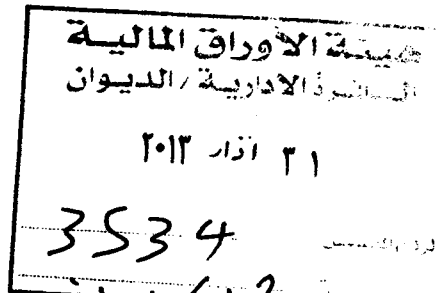 هيئة الأوراق المالية
الدائرة الادارية / الديوان
٣١ اذار ٢٠١٣
3534